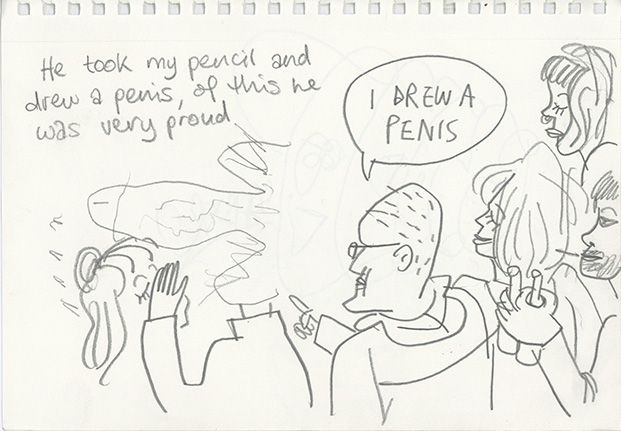 He took my pencil and
drew a penis, of this he
was very proud
I DREW A
PENIS